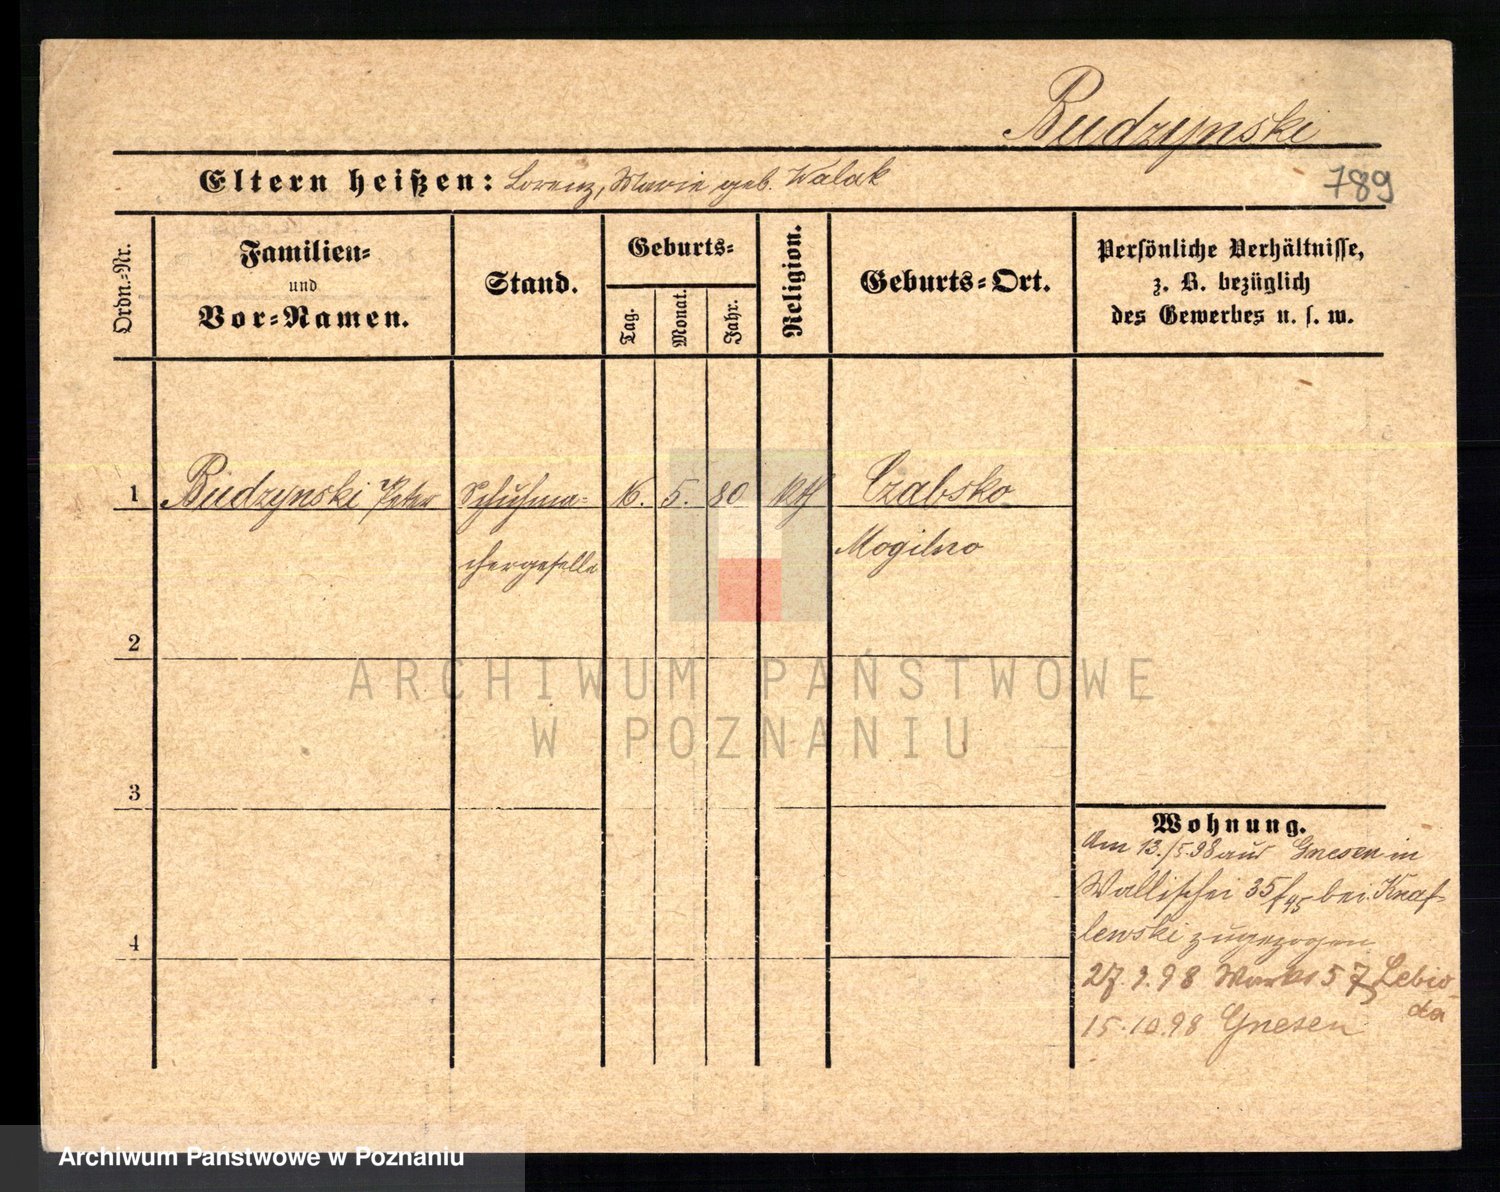 Budzynski
Eltern heißen: Lorenz, Marie geb. Walak
789
Ordn.-Nr.
Familien-
und
Vor-Namen.
Stand.
Geburts-
Tag.
Monat.
Jahr.
Religion.
Geburts-Ort.
Persönliche Verhältnisse,
z. B. bezüglich
des Gewerbes u. s. w.
1 Budzynski Peter Schuhma- 16. 5. 80 kth Czabsko
chergeselle Mogilno
2
3
4
Wohnung.
Am 13./5.98 aus Gnesen in
Wallischei 35/45 bei Knaf-
lewski zugezogen
27.9.98 57 Lebio-
da
15.10.98 Gnesen
ARCHIWUM PAŃSTWOWE
W POZNANIU
Archiwum Państwowe w Poznaniu